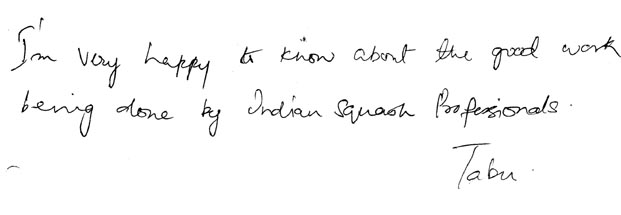 I'm very happy to know about the good work
being done by Indian Squash Professionals.
Tabu.